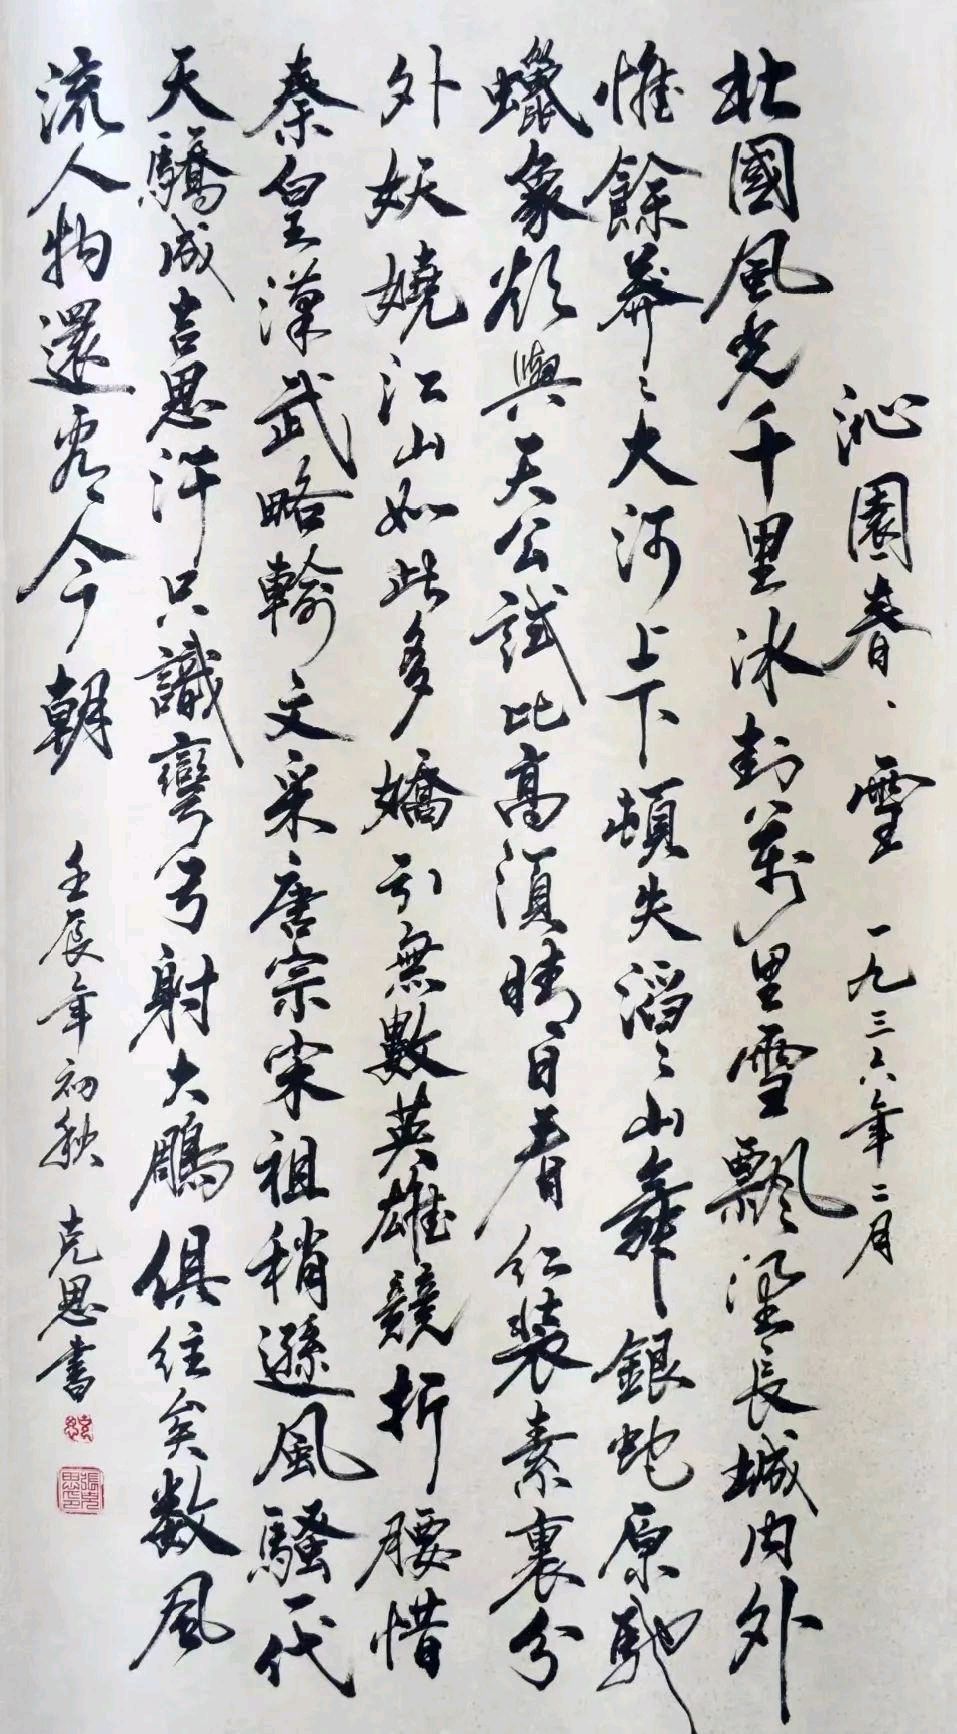 沁園春、雪 一九三六年二月
北國風光千里冰封萬里雪飄望長城内外
惟餘莽〻大河上下頓失滔〻山舞銀蛇原馳
蠟象欲與天公試比高須晴日看红裝素裹分
外妖嬈江山如此多嬌引無數英雄競折腰惜
秦皇漢武略輸文采唐宗宋祖稍遜風騷一代
天驕成吉思汗只識彎弓射大鵰俱往矣数風
流人物還看今朝 壬辰年初秋 克思書
張克思印